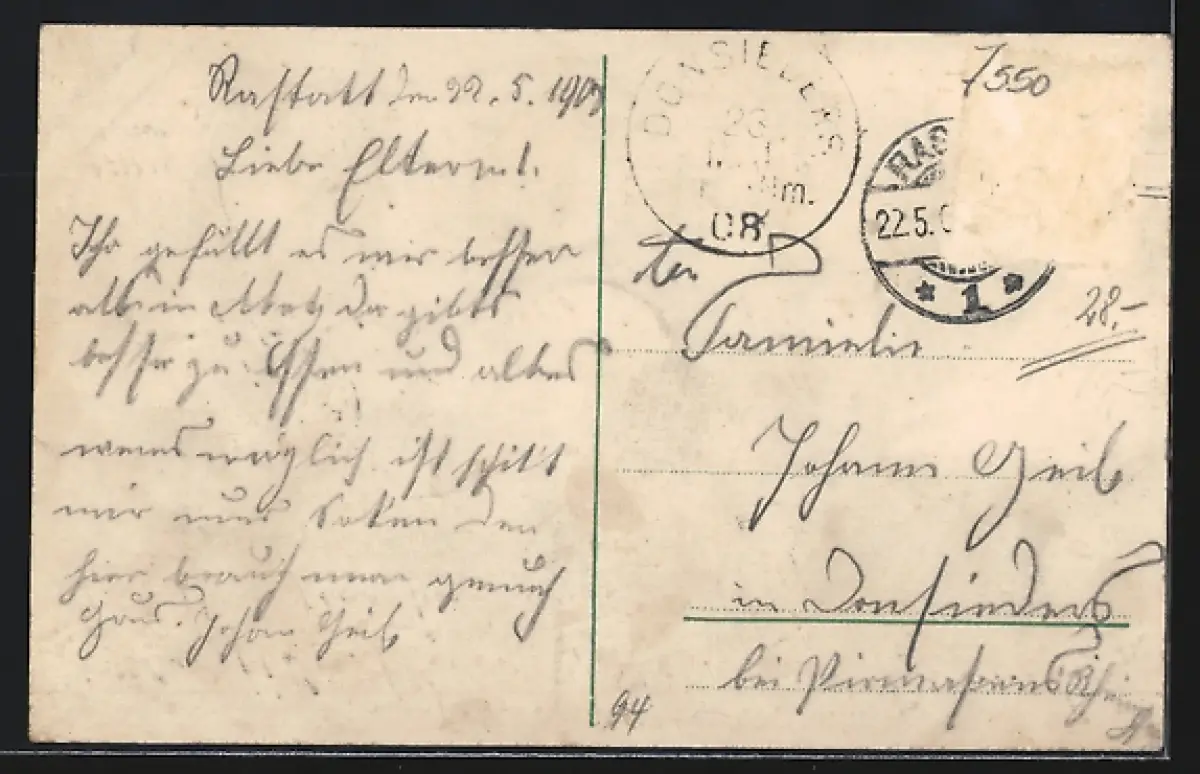 Rastatt den 22.5.1908
Liebe Eltern!
Ihr gefällt es mir besser
als in Metz da gibts
besser zu Essen und alles
wens möglich ist schikt
mir nur Soken den
hier brauch man genuch
Gruß Johan Geib
DONSIEDERS
23
08
7550
RAS
22.5.0
* 1 *
An
Familie
28.-
Johann Geib
in Donsieders
bei Pirmasens
94